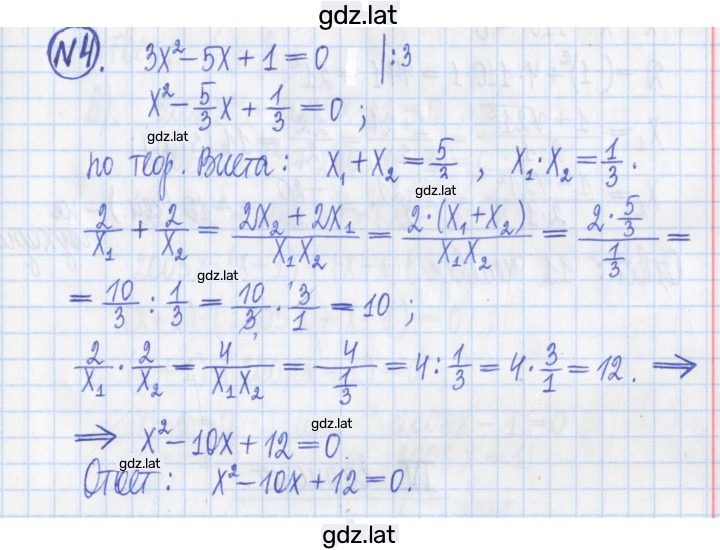 gdz.lat
№4. 3x² - 5x + 1 = 0 |:3
x² - 5/3 x + 1/3 = 0 ;
gdz.lat
по теор. Виета: x₁ + x₂ = 5/3 , x₁ · x₂ = 1/3 .
gdz.lat
2/x₁ + 2/x₂ = (2x₂ + 2x₁)/(x₁x₂) = (2·(x₁+x₂))/(x₁x₂) = (2 · 5/3)/(1/3) =
gdz.lat
= 10/3 : 1/3 = 10/3 · 3/1 = 10 ;
2/x₁ · 2/x₂ = 4/(x₁x₂) = 4/(1/3) = 4 : 1/3 = 4 · 3/1 = 12. ⇒
gdz.lat
⇒ x² - 10x + 12 = 0.
gdz.lat
Ответ: x² - 10x + 12 = 0.
gdz.lat